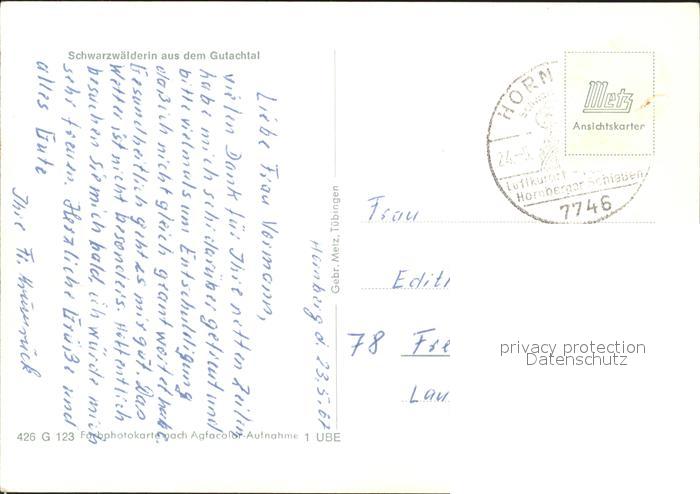 Schwarzwälderin aus dem Gutachtal
Hornberg d 23.5.67
Liebe Frau Vormann,
vielen Dank für Ihre netten Zeilen
habe mich sehr darüber gefreut und
bitte vielmals um Entschuldigung
daß ich nicht gleich geantwortet habe.
Gesundheitlich geht es mir gut. Das
Wetter ist nicht besonders. Hoffentlich
besuchen sie mich bald, ich würde mich
sehr freuen. Herzliche Grüße und
alles Gute
Ihre Fr.
426 G 123 Farbphotokarte nach Agfacolor-Aufnahme 1 UBE
Gebr. Metz, Tübingen
HORN
24.-5.
Luftkurort
Hornberger Schießen
7746
Metz
Ansichtskarten
Frau
Edith
78 Fre
Lau
privacy protection
Datenschutz